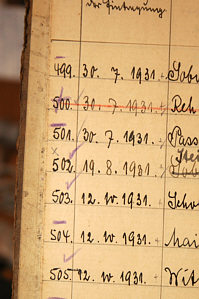 der Eintragung
499. 30. 7. 1931.
500. 30. 7. 1931. Reh
501. 30. 7. 1931. Pass
502. 19. 8. 1931.
503. 12. IV. 1931.
504. 12. IV. 1931. Mai
505. 12. IV. 1931. Wit